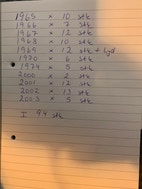 1965 x 10 stk
1966 x 7 stk
1967 x 12 stk
1968 x 10 stk
1969 x 12 stk +
1970 x 6 stk
1974 x 5 stk
2000 x 2 stk
2001 x 12 stk
2002 x 13 stk
2003 x 5 stk
I 94 stk